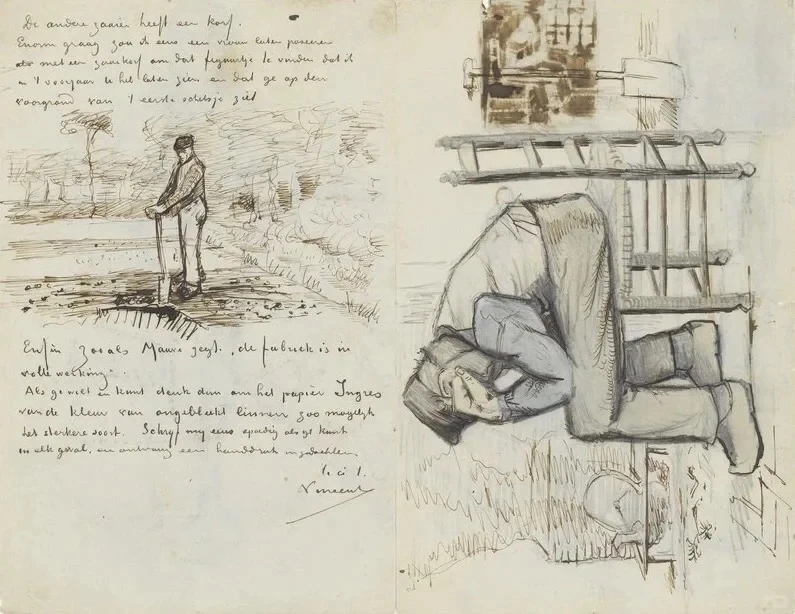 De andere zaaier heeft een korf.
Enorm graag zou ik eens een vrouw laten poseeren
met een zaaikorf om dat figuurtje te vinden dat ik
in 't voorjaar U heb laten zien en dat ge op den
voorgrond van 't eerste schetsje ziet
Enfin zooals Mauve zegt, „de fabriek is in
volle werking".
Als ge wilt en kunt denk dan om het papier Ingres
van de kleur van ongebleekt linnen zoo mogelijk
het sterkere soort. Schrijf mij eens spoedig als ge kunt
in elk geval, en ontvang een handdruk in gedachten
Vincent